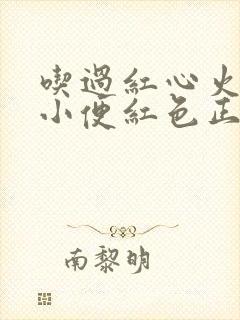 喫過紅心火
小便紅色正
南黎明